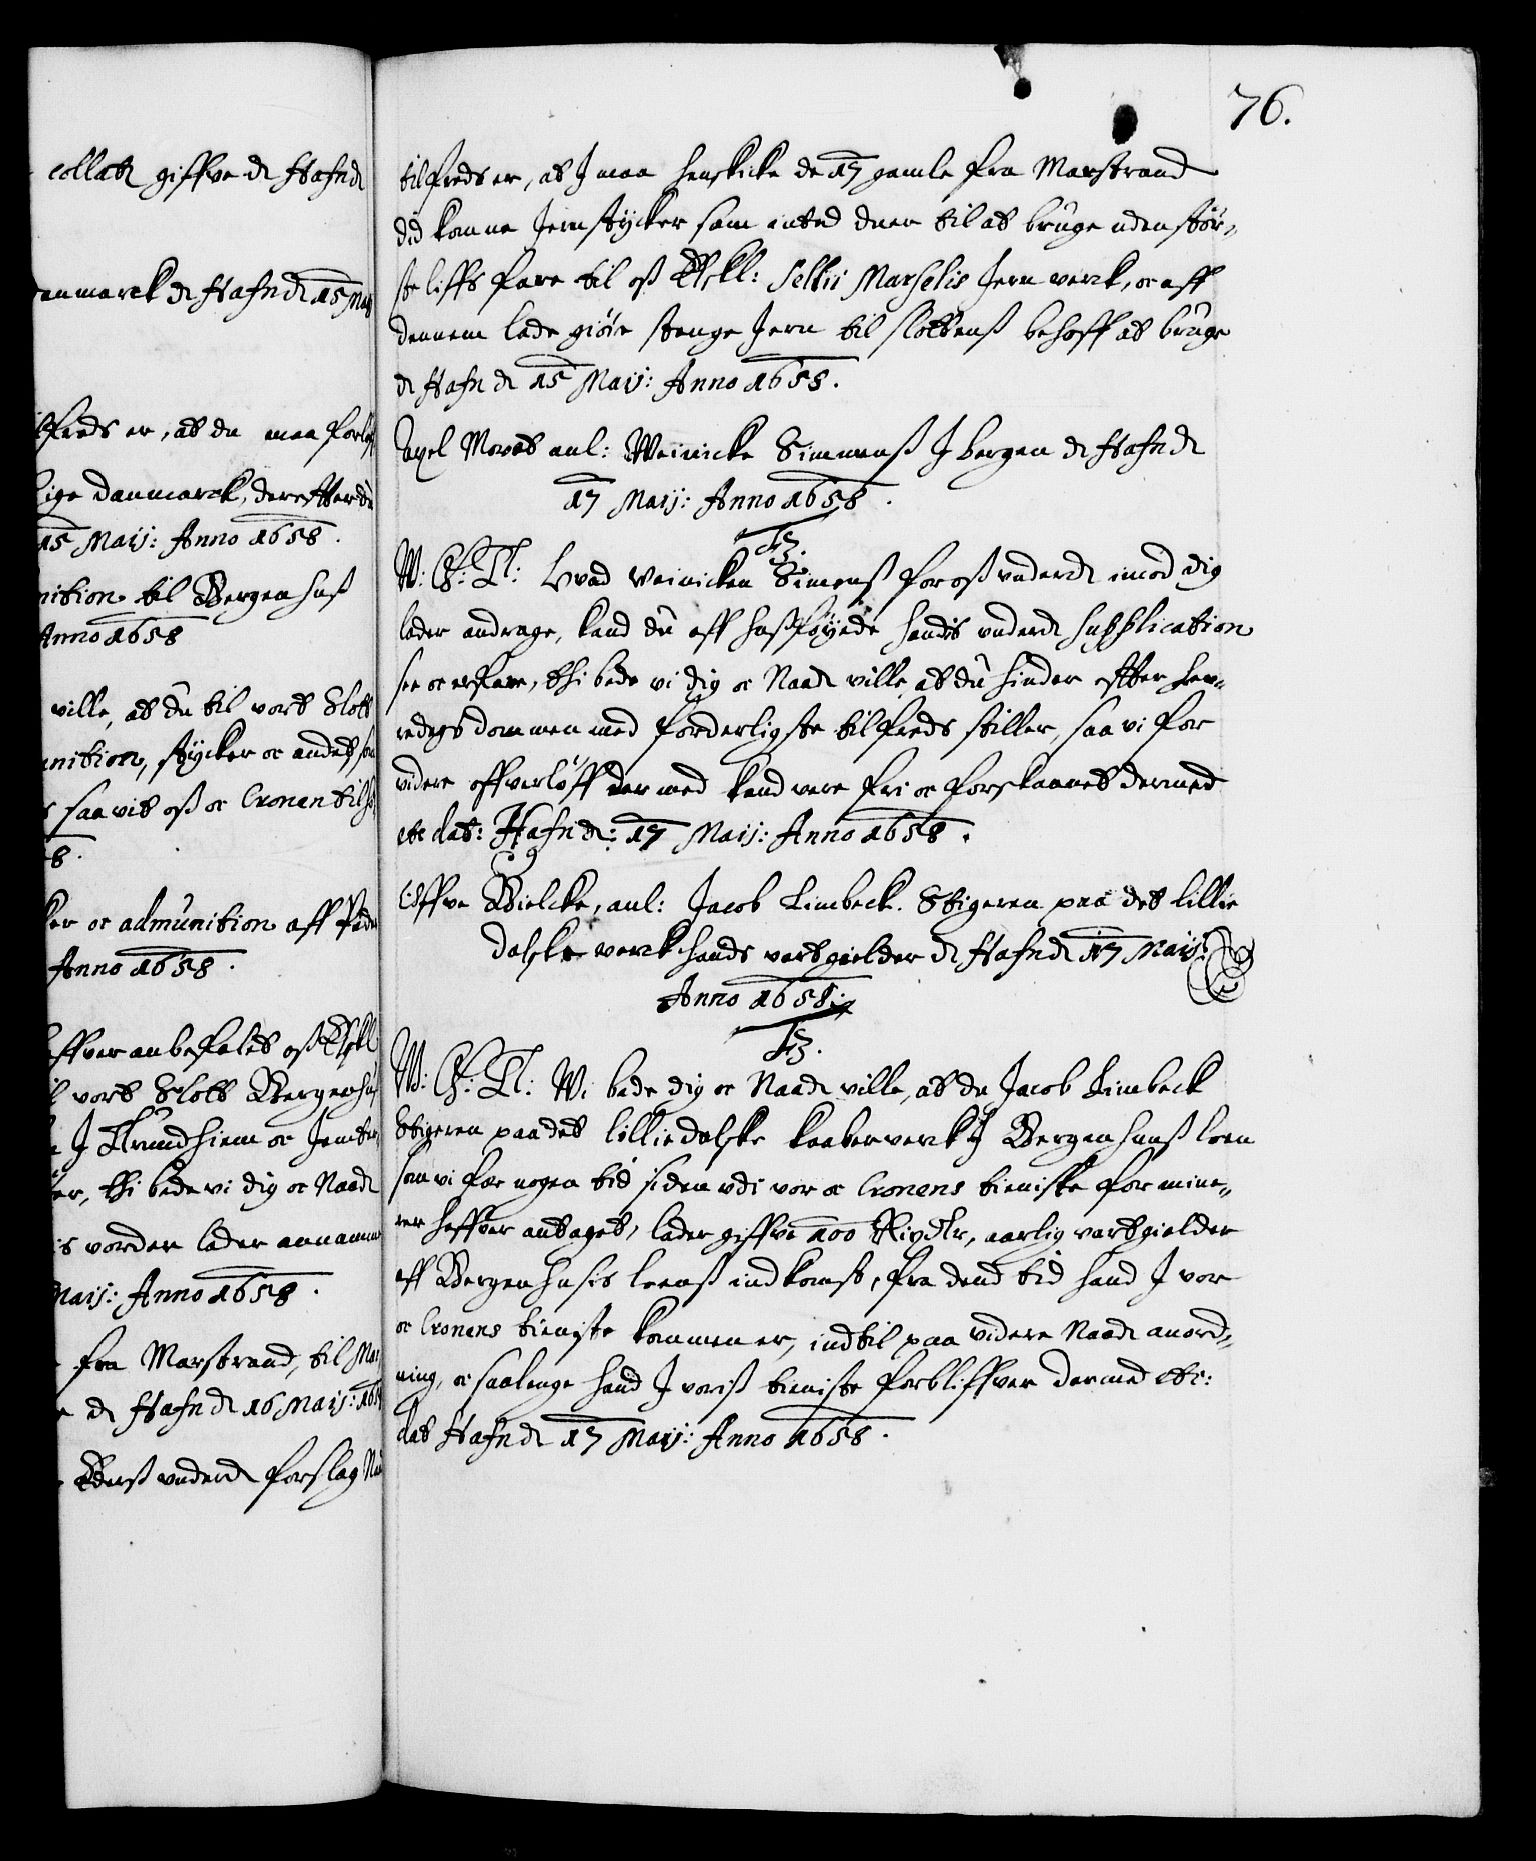 76.
collatz giffve dt Hafn dt
anmarck dt Hafn dt 15 Maij
lfreds er, at du maa forløf
lige Danmarck, dereffter du
15 Maij: Anno 1658.
nition til Bergenhuß
Anno 1658
ville, at du til vort Slott
unition, stycker oc andet som
saavit oß oc Cronen tilh
8.
ker oc admunition aff
Anno 1658.
effver anbefalet oß Elskl
l vort Slott Bergenhuß
I Trundhiem oc Jemter
er, thi bede vi dig oc Naadt
is vorder lader annamme
Maij: Anno 1658.
fra Marstrand, til Mar
dt Hafn dt 16 Maij: 1658
Berß underdt forslag
tilfreds er, at I maa henskicke de 17 gamle fra Marstrand
did komne Jernstycker som inted duer til at bruge uden stør-
ste liffs fare til oß Elskl: Selliis Marselis Jern verck, oc aff
dennem lade giøre stange Jern til Slottenß behoff at bruge
dt Hafn dt 15 Maij: Anno 1658.
Axel Movat anl: Weinicke Simenß I bergen dt Hafn dt
17 Maij: Anno 1658.
F3.
W: G: T: Hvad Weinicken Simenß for oß underdt imod dig
lader andrage, kand du aff hoßføyede hendis underdt supplication
see oc erfare, thi bede vi dig oc Naadt ville, at du hinder effter Her-
redags dommen med forderligste tilfreds stiller, saa vi for
videre offverløff dermed kand vere fri oc forskaanet dermed
etc dat: Hafn dt: 17 Maij: Anno 1658.
Offve Bielcke, anl: Jacob Limbeck. Stigeren paa det lillie
dalske verck hands vartgielder dt Hafn dt 17 Maij:
Anno 1658:
F3.
W: G: T: Wi bede dig oc Naadt ville, at du Jacob Limbeck
Stigeren paa det lilliedalske kaaberverck I Bergenhuuß leen
som vi for nogen tid siden udi vor oc Cronens tieniste for mine-
rer haffver antaget, lader giffve 100 Rixdlr, aarlig vartgielder
aff Bergenhusis leenß indkomst, fra dend tid hand I vor
oc Cronens tieniste kommen er, indtil paa videre Naadt anord-
ning, oc saalenge hand I voriß tieniste forbliffver dermed etc:
dat Hafn dt 17 Maij: Anno 1658.